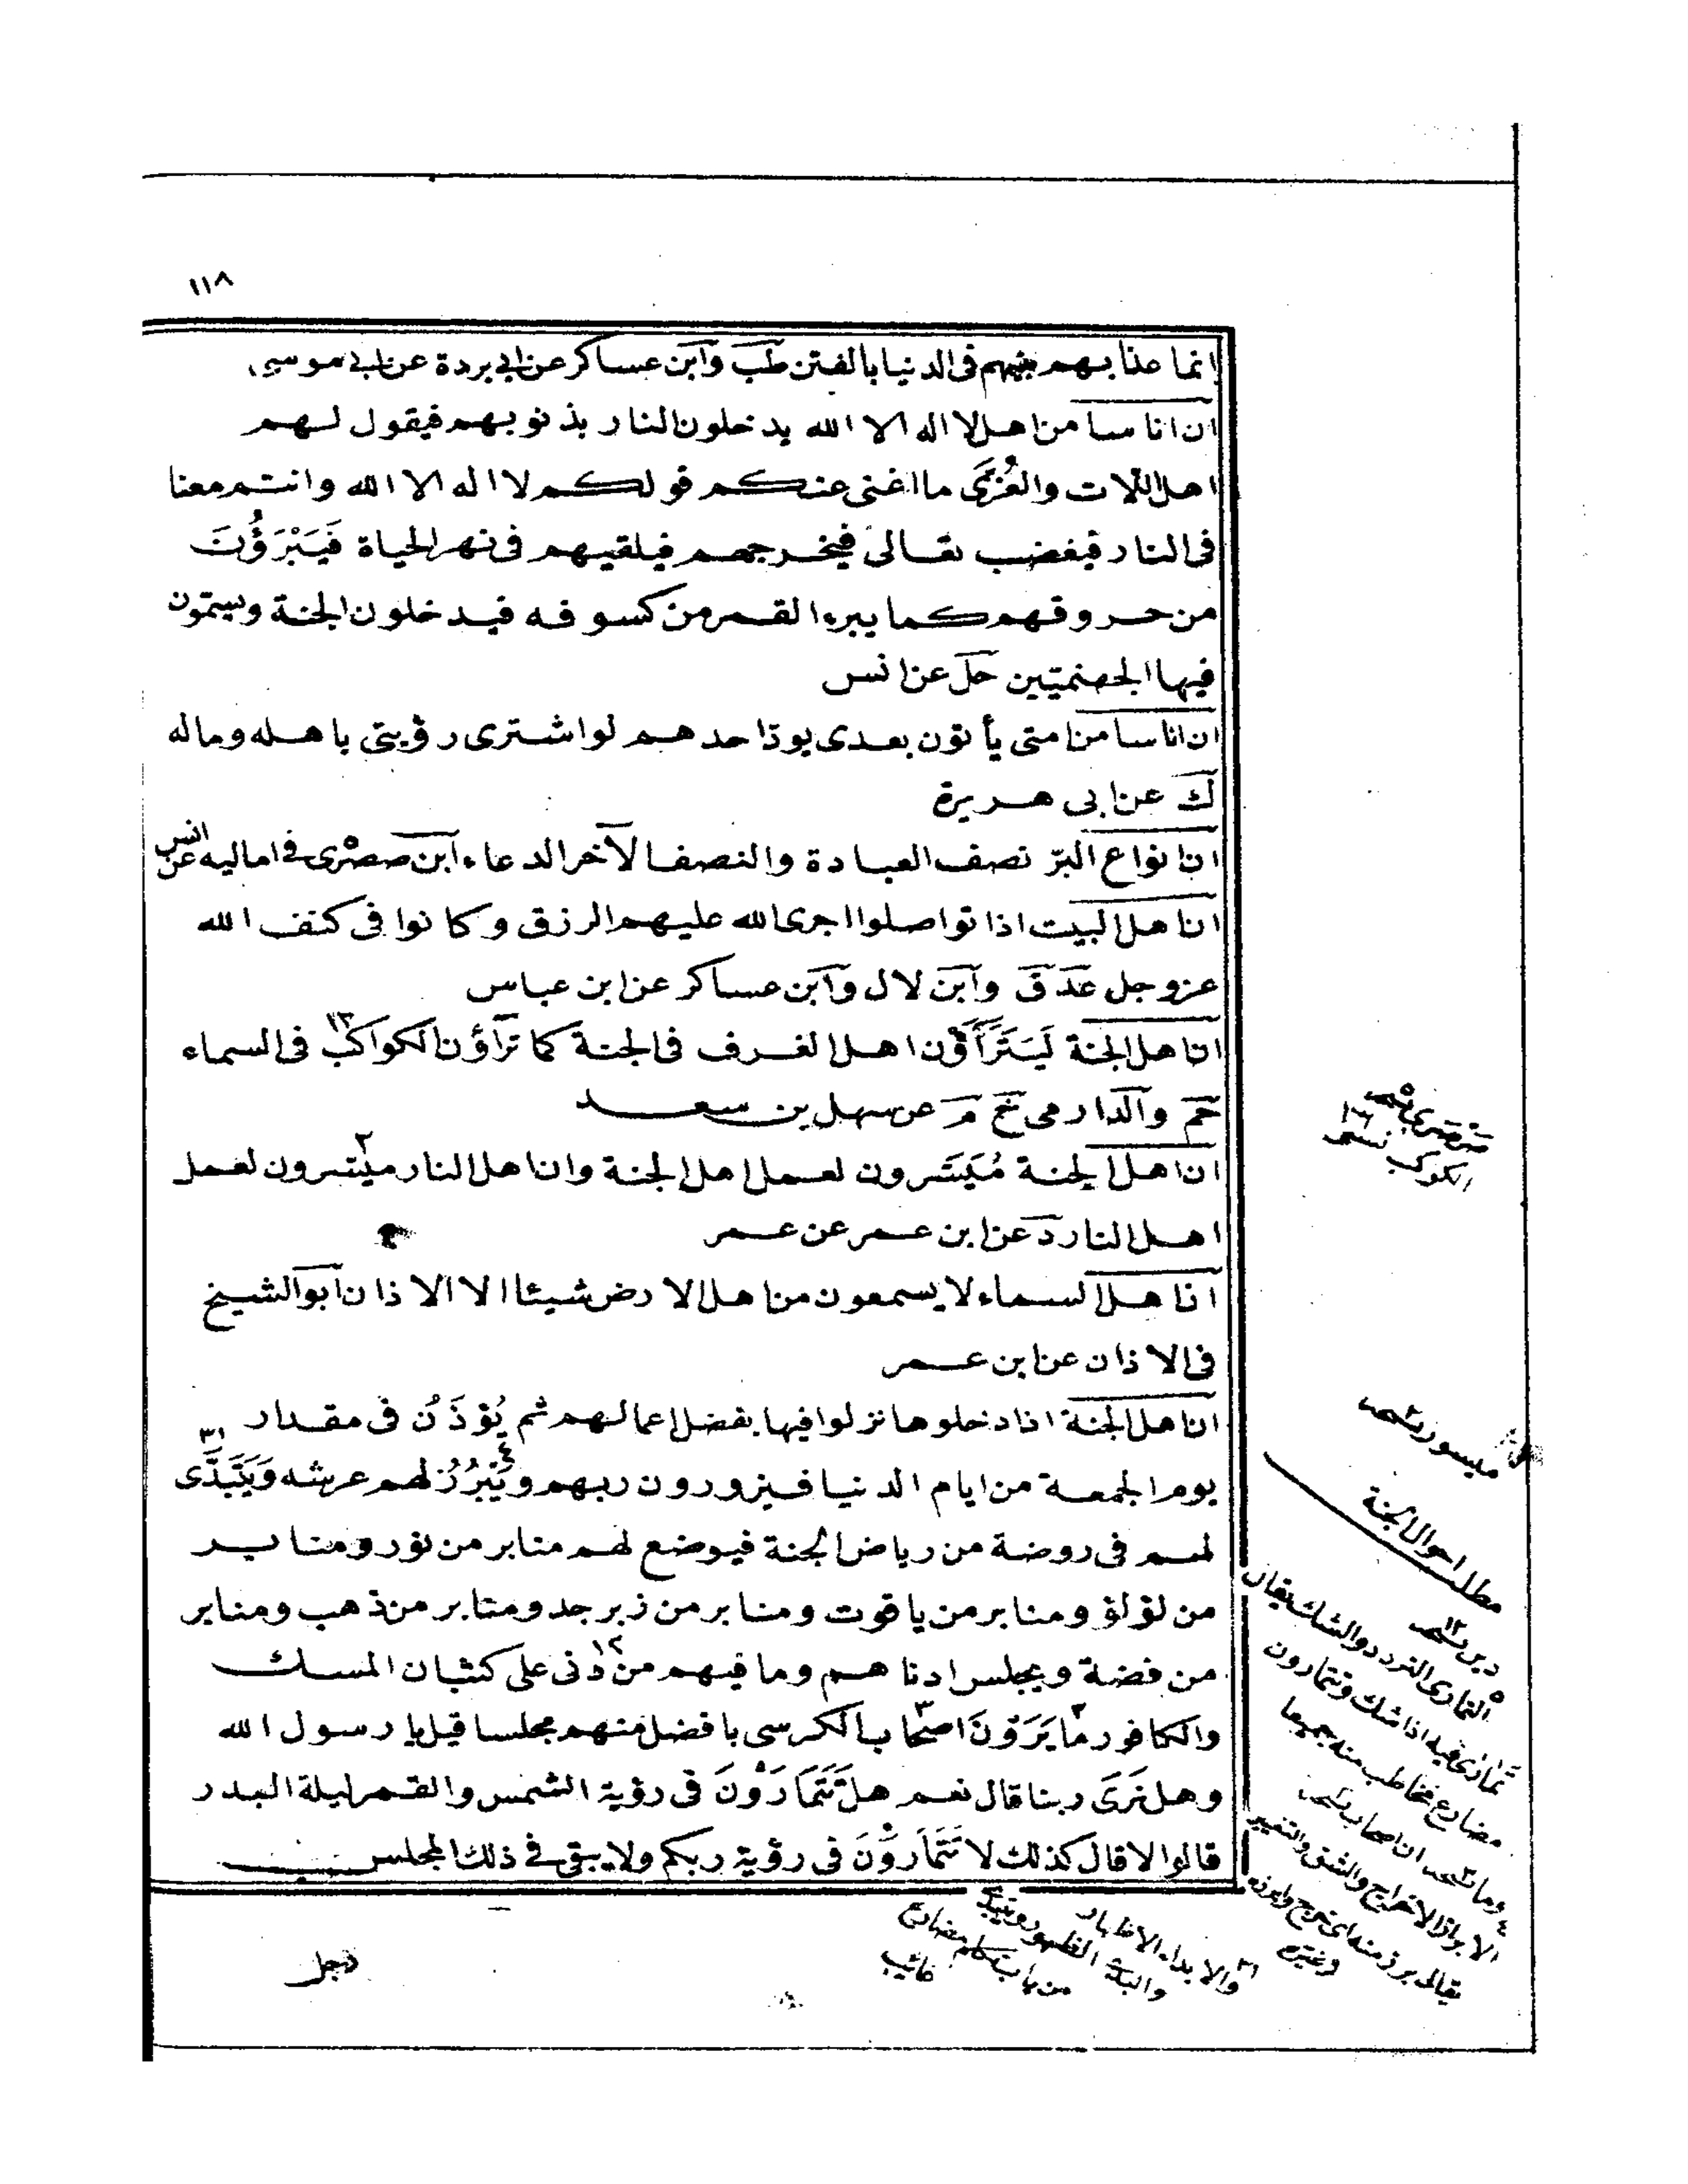 ١١٨
انما عذابهم بينهم فى الدنيا بالفتن طب وابن عساكر عن ابى بردة عن ابى موسى
ان اناسا من اهل لا اله الا الله يدخلون النار بذنوبهم فيقول لهم
اهل اللات والعُزّى ما اغنى عنكم قولكم لا اله الا الله وانتم معنا
فى النار فيغضب تعالى فيخرجهم فيلقيهم فى نهر الحياة فَيَبْرَؤُنَ
من حروقهم كما يبرء القمر من كسوفه فيدخلون الجنة ويسمّون
فيها الجهنميّين حل عن انس
ان اناسا من امتى يأتون بعدى يودّ احدهم لو اشترى رؤيتى باهله وماله
ك عن ابى هريرة
ان انواع البرّ نصف العبادة والنصف الآخر الدعاء ابن صصرى فى اماليه عن انس
ان اهل البيت اذا تواصلوا اجرى الله عليهم الرزق وكانوا فى كنف الله
عز وجل عد ق وابن لال وابن عساكر عن ابن عباس
ان اهل الجنة لَيَتَرَاَؤْن اهل الغرف فى الجنة كما تراؤن الكواكب ١٣ فى السماء
حم والدارمى خ م عن سهل بن سعد
ان اهل الجنة مُيَسَّرون لعمل اهل الجنة وان اهل النار ميسّرون ٢ لعمل
اهل النار د عن ابن عمر عن عمر
ان اهل السماء لا يسمعون من اهل الارض شيئا الا الاذان ابو الشيخ
فى الاذان عن ابن عمر
ان اهل الجنة اذا دخلوها نزلوا فيها بفضل اعمالهم ثم يُؤذَنُ فى مقدار
يوم الجمعة من ايام الدنيا فيزورون ربهم ويُبْرُزُ ٤ لهم عرشه وَيَتَبَدَّى ٣١
لهم فى روضة من رياض الجنة فيوضع لهم منابر من نور ومنابر
من لؤلؤ ومنابر من ياقوت ومنابر من زبرجد ومنابر من ذهب ومنابر
من فضة ويجلس ادناهم وما فيهم من ١٢ دنى على كثبان المسك
والكافور ما يَرَوْنَ اصحاب الكرسى بافضل منهم مجلسا قيل يا رسول الله
وهل نَرَى ربنا قال نعم هل تَتَمَارَوْنَ فى رؤية الشمس والقمر ليلة البدر
قالوا لا قال كذلك لا تَتَمَارَوْنَ فى رؤية ربكم ولا يبقى فى ذلك المجلس
رجل
صصرى نسخه
الكوكب نسخه
ميسور نسخه
مطلب احوال الجنة
دير نسخه ١٢
التمارى التردد والشك يقال
تمارى فيه اذا شك وتتمارون
مضارع مخاطب منه جميعا
وما نسخه ان اصحاب نسخه
الابراز الاخراج والشق والتمييز
يقال برز منه اى خرج وابرزه
وغيره
٣١ والابداء الاظهار
والبدء الظهور ويتبدى
مضارع غائب